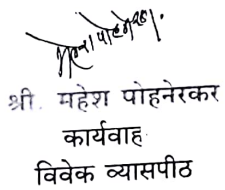 श्री. महेश पोहनेरकर
कार्यवाह
विवेक व्यासपीठ